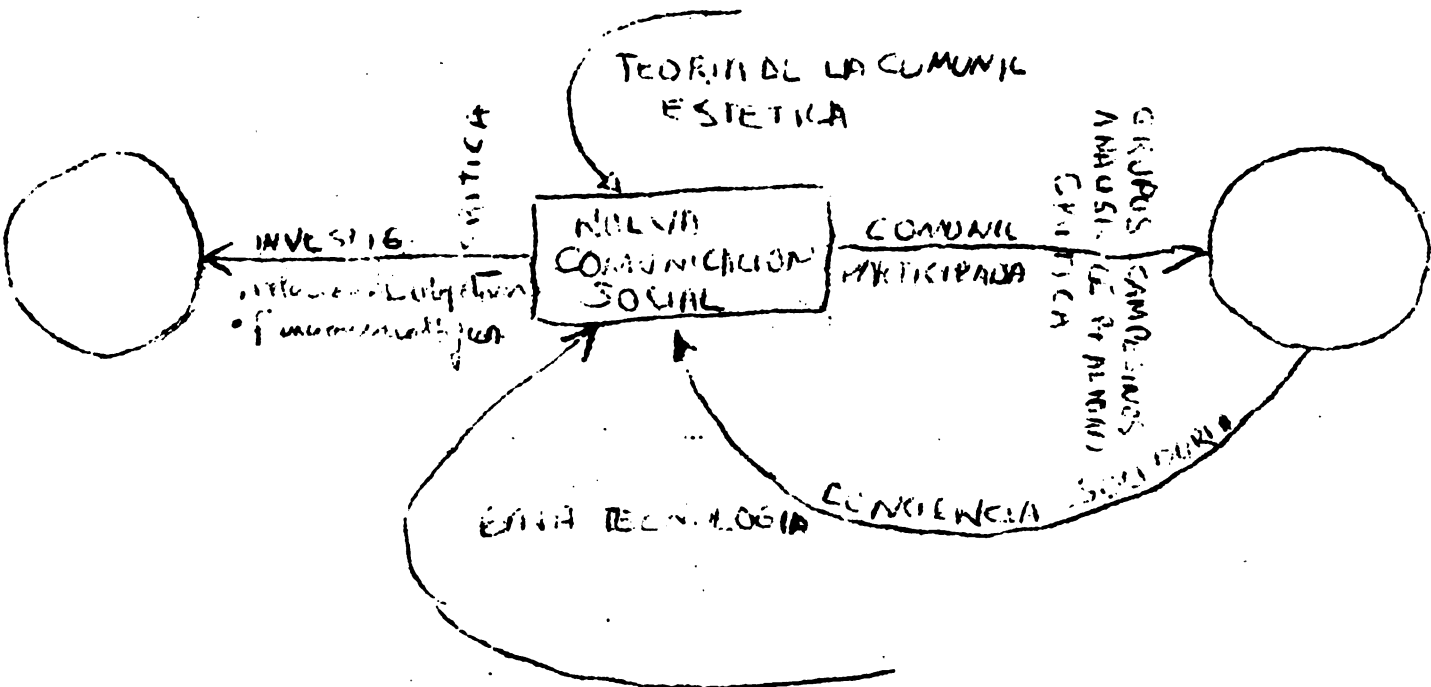 TEORIA DE LA COMUNIC
ESTETICA
CRITICA
INVESTIG
NUEVA
COMUNICACION
SOCIAL
COMUNIC
PARTICIPADA
GRUPOS CAMPESINOS
ANALISIS DE
CRITICA
CONCIENCIA SOLIDARIA
TECNOLOGIA